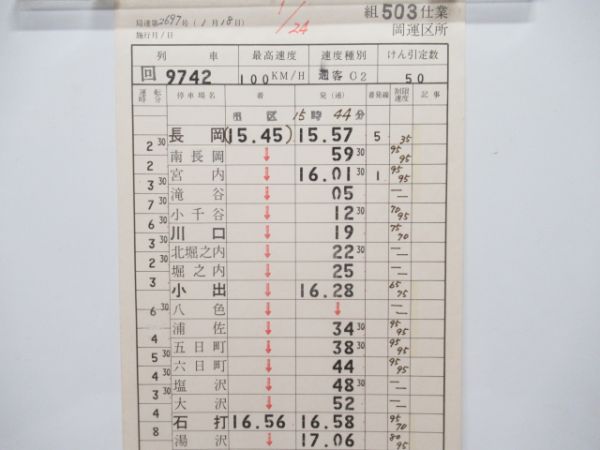 局達第2697号 (1月18日)
施行月/日
1/24
組503仕業
岡運区所
列車 最高速度 速度種別 けん引定数
回9742 100KM/H 通客O2 50
運転時分 停車場名 着 発(通) 着発線 制限速度 記事
出区 15時44分
長岡 (15.45) 15.57 5 35
2 30
南長岡 ↓ 59 30 95 95
2
宮内 ↓ 16.01 30 1 95 95
3 30
滝谷 ↓ 05 — —
7 30
小千谷 ↓ 12 30 70 95
6 30
川口 ↓ 19 75 70
3 30
北堀之内 ↓ 22 30 — —
2 30
堀之内 ↓ 25 — —
3
小出 ↓ 16.28 65 75
八色 ↓ ↓ — —
6 30
浦佐 ↓ 34 30 95 95
4
五日町 ↓ 38 30 95 95
5 30
六日町 ↓ 44 95 95
4 30
塩沢 ↓ 48 30 — —
3 30
大沢 ↓ 52 — —
4
石打 16.56 16.58 95 70
8
湯沢 ↓ 17.06 80 95